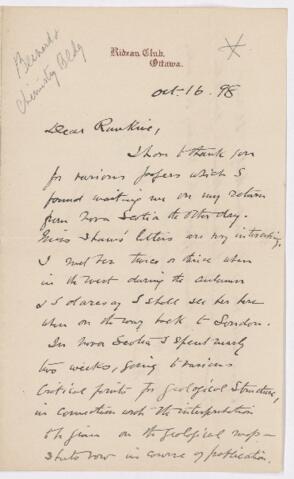 Chemistry Bldg
Rideau Club,
Ottawa.
Oct. 16 98
Dear Rankine,
I have to thank you
for various papers which I
found waiting me on my return
from Nova Scotia the other day.
Miss Shaw's letters are very interesting.
I met her twice or thrice when
in the West during the autumn
& I daresay I shall see her here
when on the way back to London.
In Nova Scotia I spent nearly
two weeks, going to various
critical points for geological structure,
in connection with the interpretation
to be given on the geological map —
sheets now in course of publication.